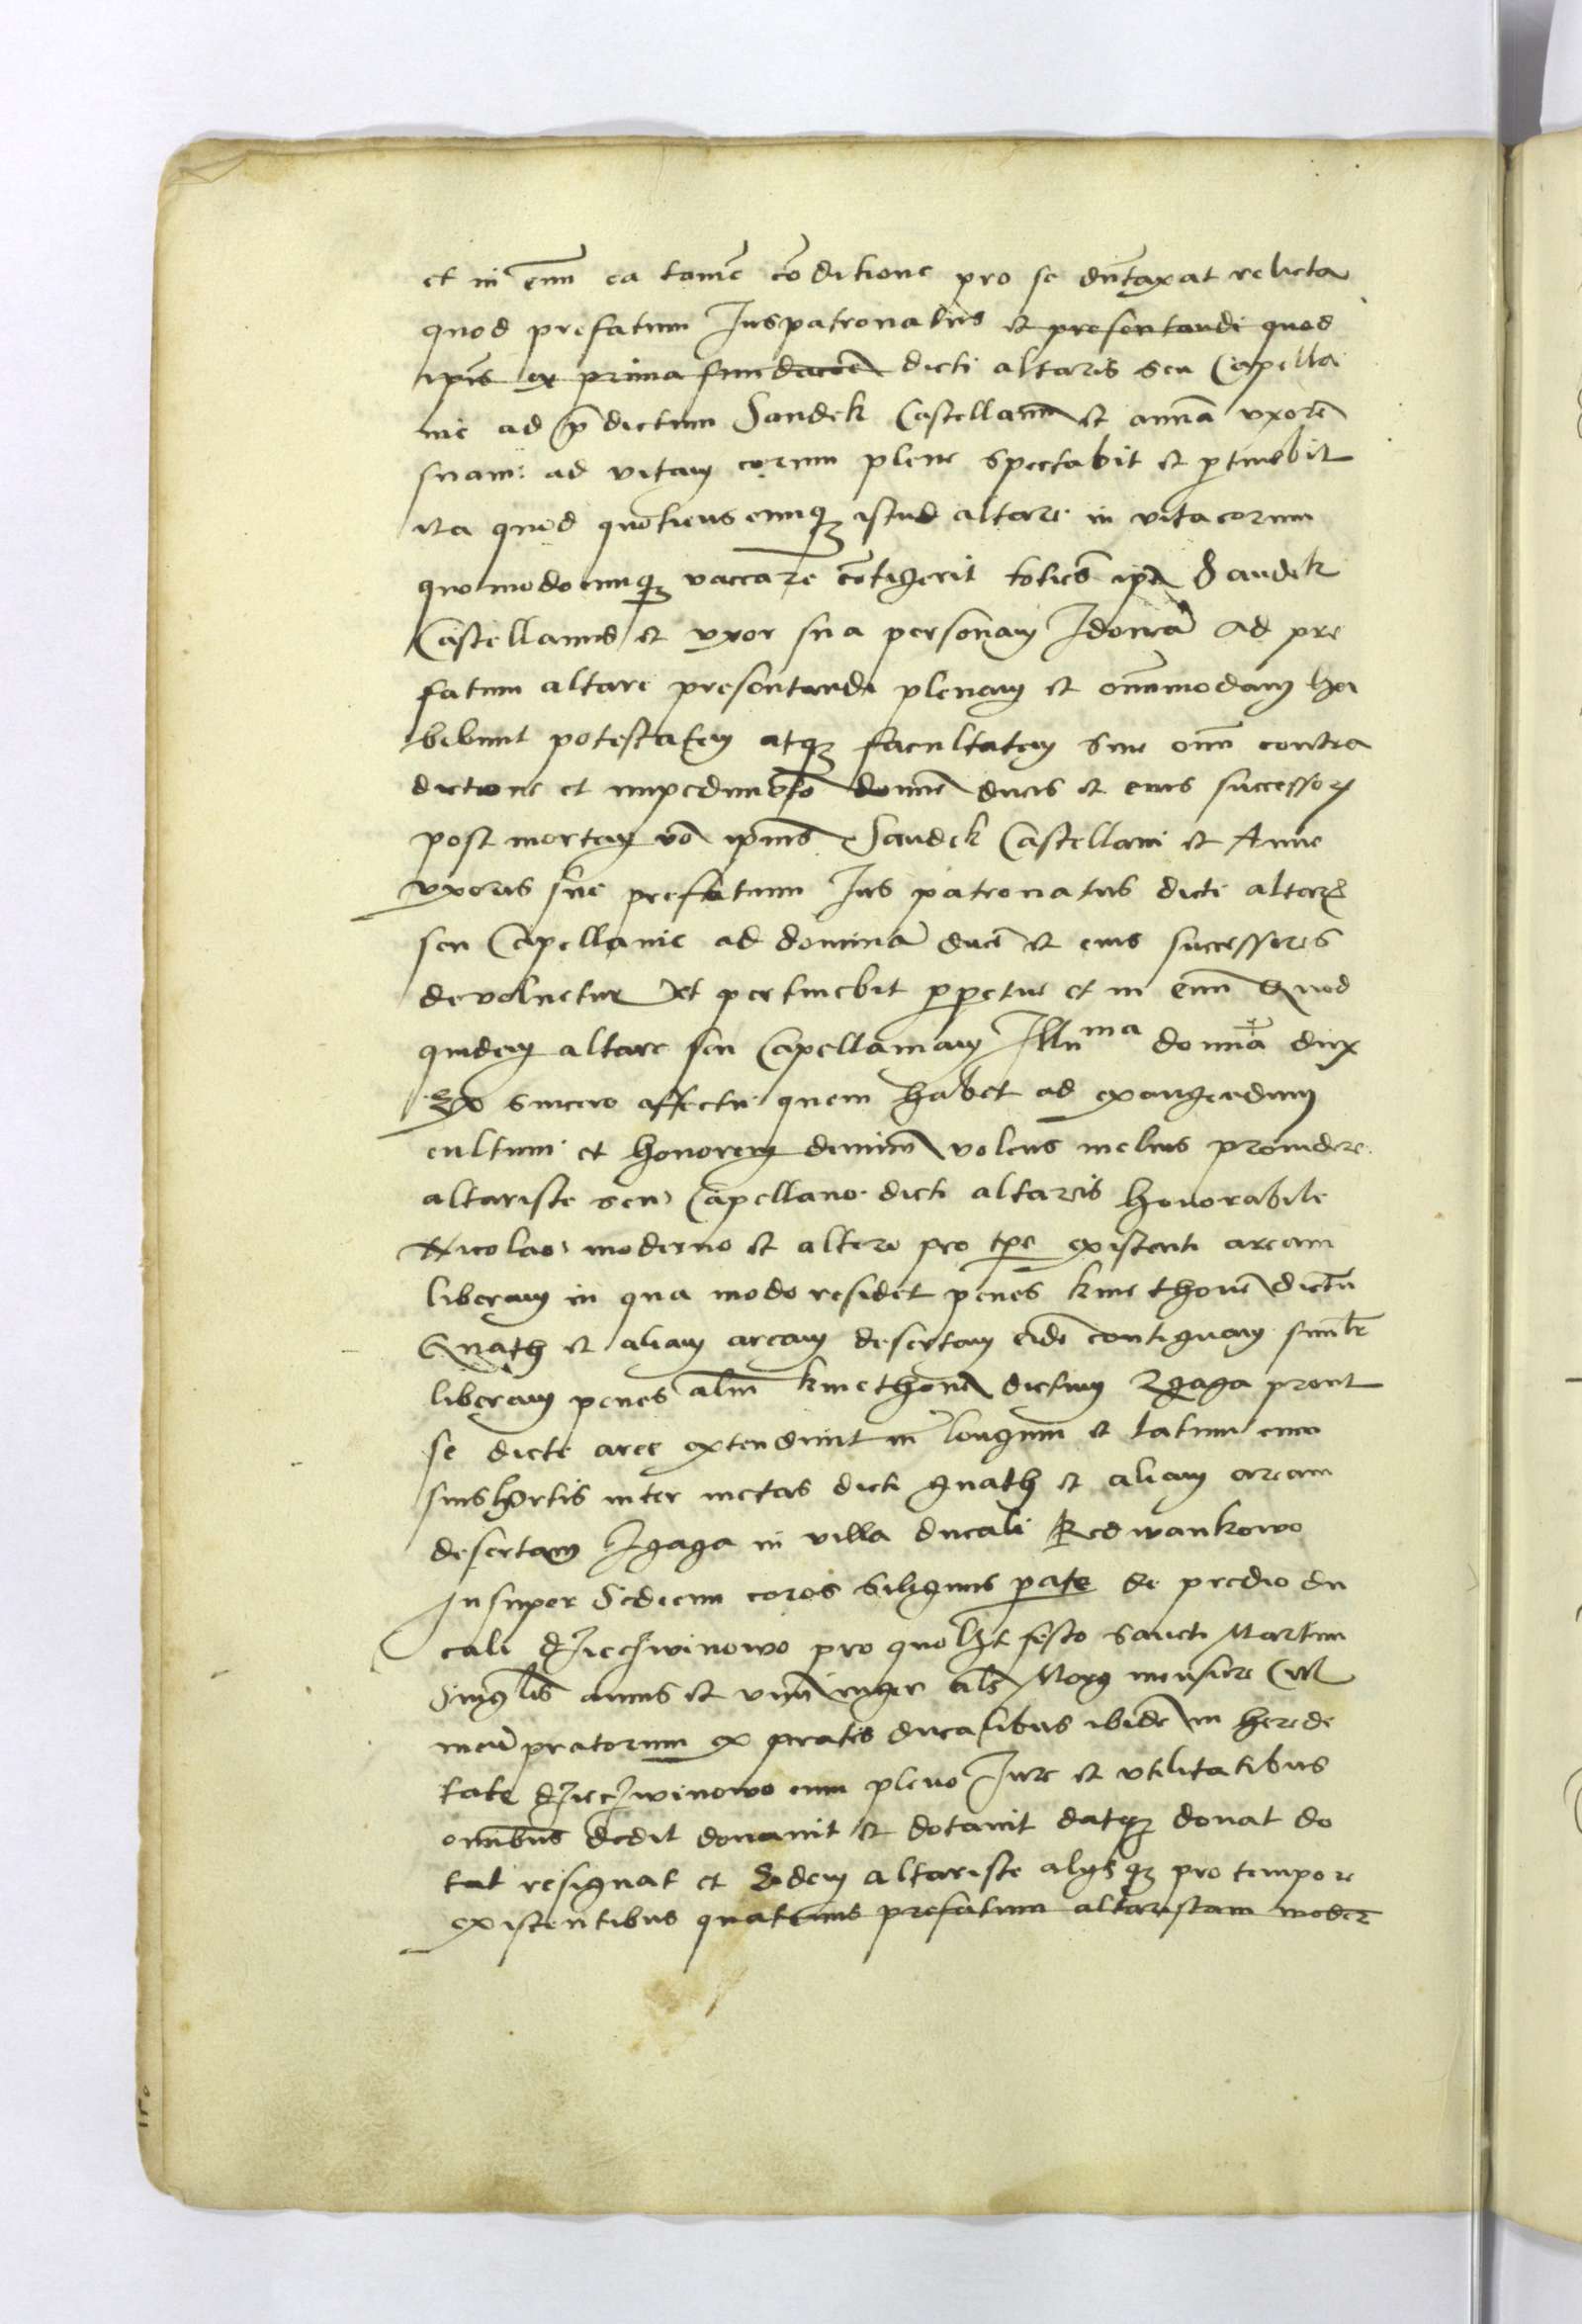 et in euū ea tamē cōditione pro se dūtaxat relicta
quod prefatum Juspatronatus et presentandi quod
ipīs ex prima fundacōe dicti altaris seu Capella
nie ad p̄dictum Sandek Castellanū et annā uxorē
suam: ad vitam eorum plene spectabit et ptinebit
ita quod quotienscumq̨ istud altare in vita eorum
quomodocumq̨ vaccare cōtigerit totiēs ipē Sandek
Castellanus et uxor sua personam Idoneā ad pre
fatum altare presentandi plenam et om̄imodam ha
bebunt potestatem atq̨ facultatem sine om̄i contra
dictione et impedimēto domīe ducis et eius successorꝝ
post mortem vō ipīus Sandek Castellani et Anne
uxoris sue prefatum Jus patronatus dicti altarꝭ
seu Capellanie ad dominā ducē et eius successores
devoluetur et pertinebit ppetue et in euū Quod
quidem altare seu Capellaniam Illuma domīa dux
Ex sincero affectu quem habet ad exaugendum
cultum et honorem diuinū volens melius prouidere
altariste seu Capellano dicti altaris honorabile
Nicolao moderno et altero pro tpe existenti aream
liberam in qua modo residet penes kmethonē dictū
Gnath et aliam aream desertam eidē contiguam simlr
liberam penes aliū kmethonē dictum Zgaga prout
se dicte aree extendunt in longum et latum cum
suis hortis inter metas dicti gnath et aliam aream
desertam Zgaga in villa ducali Redwankowo
Insuper Sedecim coros siliginis pate de predio du
cali dzieczwinowo pro quolꝫt festo sancti Martini
Singlīs annis et unū iuger als Morg mensure Cul
meñ pratorum ex pratis ducalibus ibidē in herede
tate dzieczwinowo cum pleno Jure et utilitatibus
om̄ibus dedit donauit et dotauit datq̨ donat do
tat resignat et Eidem altariste alysq̨ pro tempore
existentibus quatenus prefatum altaristam moder̄